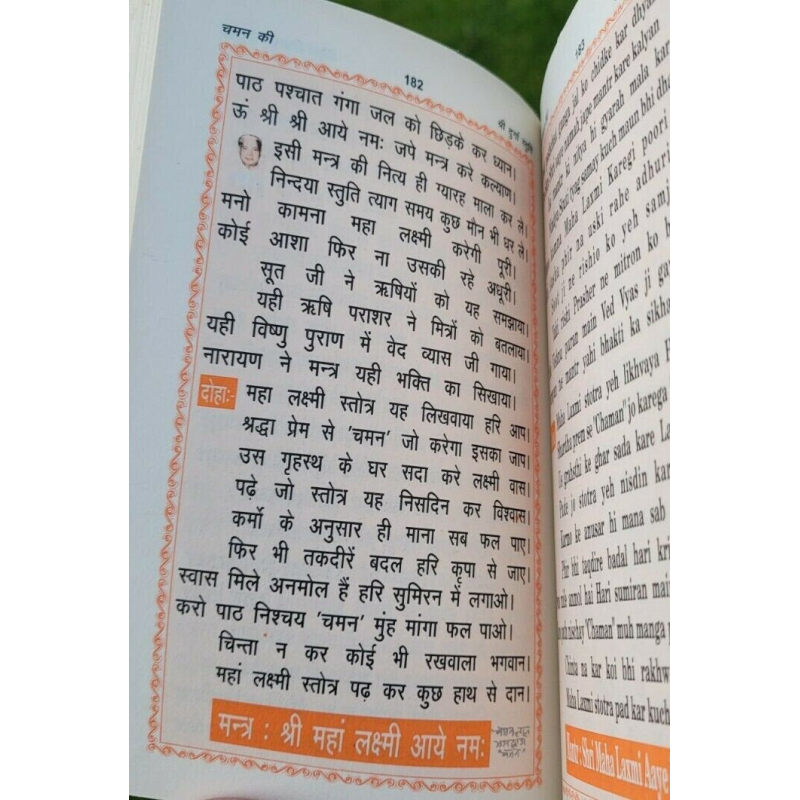 चमन की
182
श्री दुर्गा स्तुति
पाठ पश्चात गंगा जल को छिड़के कर ध्यान।
ऊं श्री श्री आये नमः जपे मन्त्र करे कल्याण।
इसी मन्त्र की नित्य ही ग्यारह माला कर ले।
निन्दया स्तुति त्याग समय कुछ मौन भी धर ले।
मनो कामना महा लक्ष्मी करेगी पूरी।
कोई आशा फिर ना उसकी रहे अधूरी।
सूत जी ने ऋषियों को यह समझाया।
यही ऋषि पराशर ने मित्रों को बतलाया।
यही विष्णु पुराण में वेद व्यास जी गाया।
नारायण ने मन्त्र यही भक्ति का सिखाया।
दोहाः- महा लक्ष्मी स्तोत्र यह लिखवाया हरि आप।
श्रद्धा प्रेम से 'चमन' जो करेगा इसका जाप।
उस गृहस्थ के घर सदा करे लक्ष्मी वास।
पढ़े जो स्तोत्र यह निसदिन कर विश्वास।
कर्मो के अनुसार ही माना सब फल पाए।
फिर भी तकदीरें बदल हरि कृपा से जाए।
स्वास मिले अनमोल हैं हरि सुमिरन में लगाओ।
करो पाठ निश्चय 'चमन' मुंह मांगा फल पाओ।
चिन्ता न कर कोई भी रखवाला भगवान।
महां लक्ष्मी स्तोत्र पढ़ कर कुछ हाथ से दान।
मन्त्र : श्री महां लक्ष्मी आये नमः
183
jal ko chidke kar dhyan
jape mantr kare kalyan
ki nitya hi gyarah mala kar
samay kuch maun bhi dhar
Maha Laxmi Karegi poori
phir na uski rahe adhuri
ji ne rishio ko yeh samj
rushi Prasher ne mitron ko b
puran main Ved Vyas ji ga
ne mantr yahi bhakti ka sikha
Maha Laxmi stotra yeh likhvaya H
prem se 'Chaman' jo karega
Us grahsthi ke ghar sada kare La
Pade jo stotra yeh nisdin kar
Karmo ke anusar hi mana sab
Phir bhi taqdire badal hari kri
anmol hai Hari sumiran main
nischay 'Chaman' muh manga p
Chinta na kar koi bhi rakhw
Maha Laxmi stotra pad kar kuch
Mantr : Shri Maha Laxmi Aaye